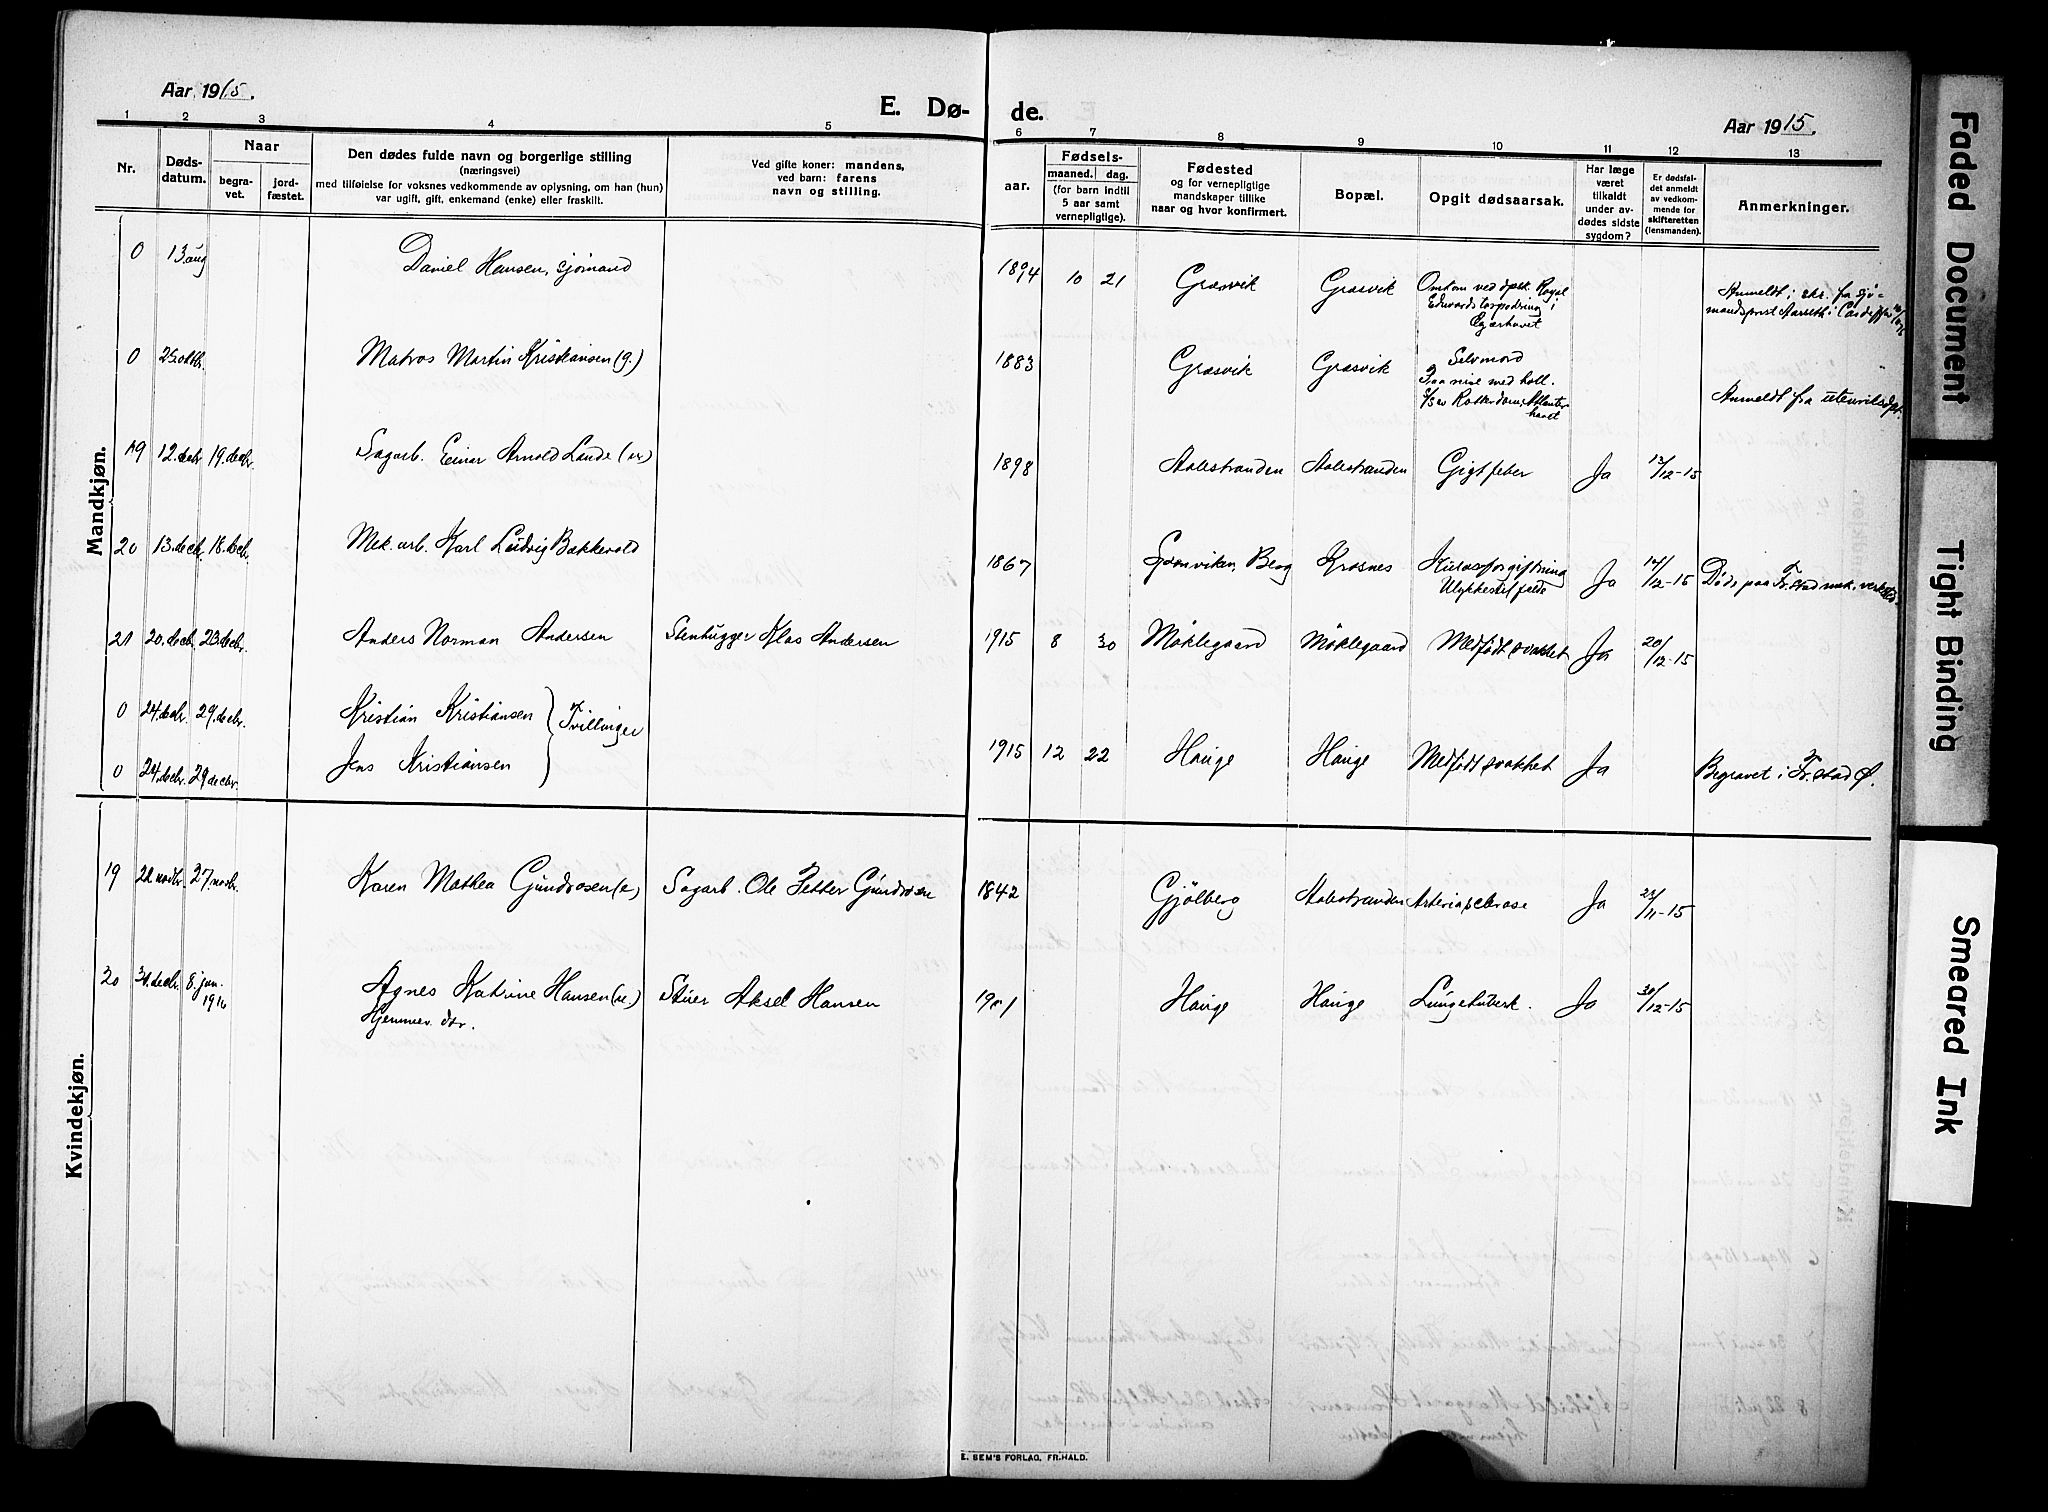 Aar 1915.
E. Dø- de.
Aar 1915.
1 2 3 4 5 6 7 8 9 10 11 12 13
Nr.
Døds-
datum.
Naar
begra-
vet.
jord-
fæstet.
Den dødes fulde navn og borgerlige stilling
(næringsvei)
med tilføielse for voksnes vedkommende av oplysning, om han (hun)
var ugift, gift, enkemand (enke) eller fraskilt.
Ved gifte koner: mandens,
ved barn: farens
navn og stilling.
aar.
Fødsels-
maaned. dag.
(for barn indtil
5 aar samt
vernepligtige).
Fødested
og for vernepligtige
mandskaper tillike
naar og hvor konfirmert.
Bopæl.
Opgit dødsaarsak.
Har læge
været
tilkaldt
under av-
dødes sidste
sygdom?
Er dødsfal-
det anmeldt
av vedkom-
mende for
skifteretten
(lensmanden).
Anmerkninger.
Mandkjøn.
0 13. aug Daniel Hansen, sjømand 1894 10 21 Græsvik Græsvik Omkom ved dpsk. Royal
Edwards torpedring i
Ægærhavet
Anmeldt i skr. fra sjø-
mandsprest Aarseth i Cardiff
0 25. oktbr. Matros Martin Kristiansen (g.) 1883 Græsvik Græsvik Selvmord
Paa reise med holl.
S/S Rotterdam, Atlanter
havet
Anmeldt fra utenriksdpt.
19 12. decbr. 19. decbr. Sagarb. Einar Arnold Lunde (u.) 1898 Aalestranden Aalestranden Gigtfeber Ja 13/12-15
20 13. decbr. 18. decbr. Mek. arb. Karl Ludvig Bækkevold 1867 Berg Krosnes Kulosforgiftning
Ulykkestilfælde
Ja 14/12-15 Døde paa Fr.stad mek. verksted.
21 20. decbr. 23. decbr. Anders Norman Andersen Stenhugger Klas Andersen 1915 8 30 Møklegaard Møklegaard Medfødt svakhet Ja 20/12-15
0 24. decbr. 29. decbr. Kristian Kristiansen
Tvillinger
0 24. decbr. 29 decbr. Jens Kristiansen
1915 12 22 Hauge Hauge Medfødt svakhet Ja Begravet i Fr.stad Ø.
Kvindekjøn.
19 22 novbr. 27. novbr. Karen Mathea Gundrosen (e) Sagarb. Ole Petter Gundrosen 1842 Gjølberg Aalestranden Arteriosclerose Ja 23/11-15
20 30. decbr. 8. jan. 1916 Agnes Katrine Hansen (u.)
Hjemmev. dtr.
Stuer Aksel Hansen 1901 Hauge Hauge Lungetuberk. Ja 30/12-15
E. SEM'S FORLAG, FR.HALD.
Faded Document
Tight Binding
Smeared Ink